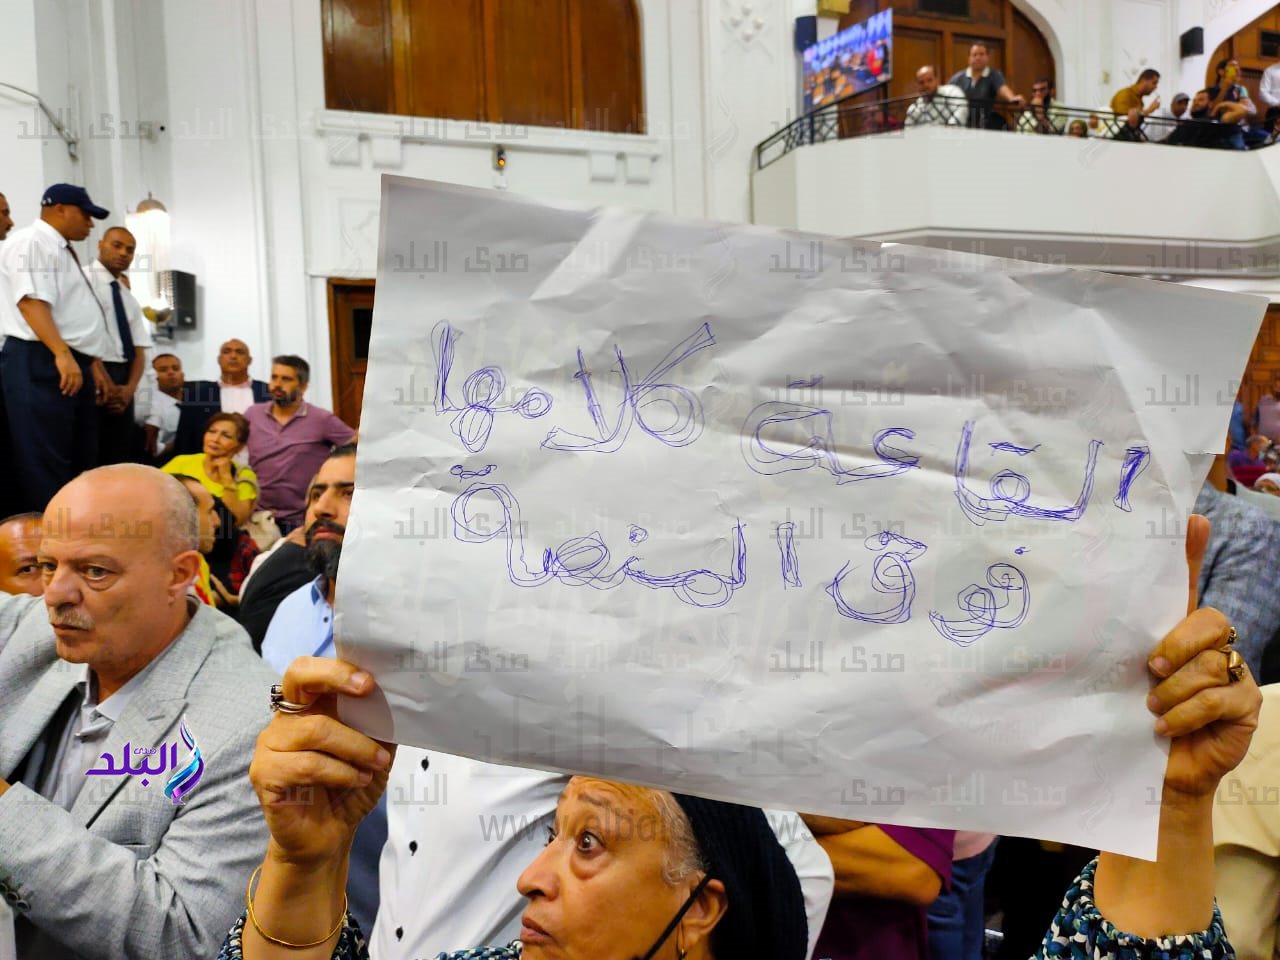 القاعة كلامها
فوق المنصة
صدى البلد